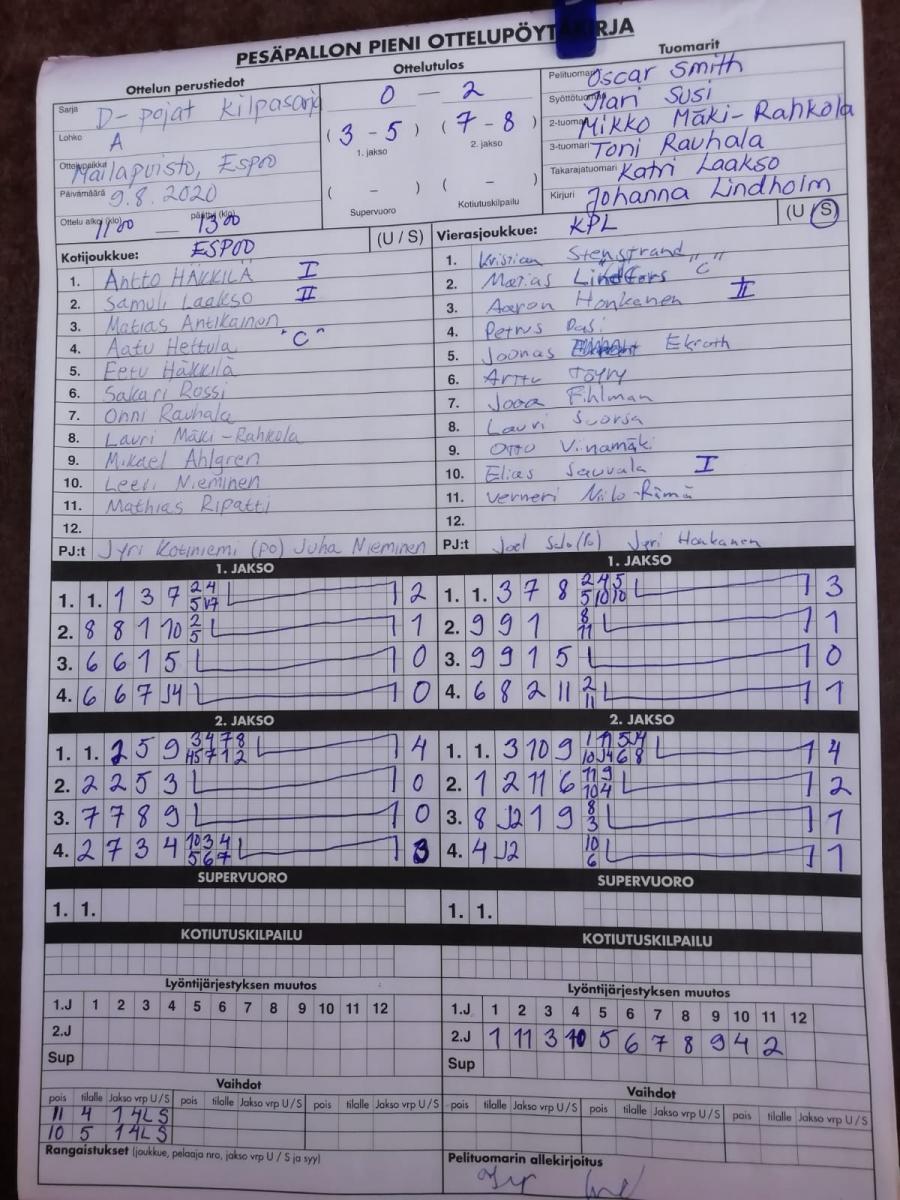 PESÄPALLON PIENI OTTELUPÖYTÄKIRJA
Ottelun perustiedot
Sarja D-pojat kilpasarja
Lohko A
Ottelupaikka Mailapuisto, Espoo
Päivämäärä 9.8.2020
Ottelu alkoi (klo) 11 00 — päättyi (klo) 13 00
Ottelutulos
0 — 2
(3 - 5) (7 - 8)
1. jakso 2. jakso
( - ) ( - )
Supervuoro Kotiutuskilpailu
Tuomarit
Pelituomari Oscar Smith
Syöttötuomari Jari Susi
2-tuomari Mikko Mäki-Rahkola
3-tuomari Toni Rauhala
Takarajatuomari Katri Laakso
Kirjuri Johanna Lindholm
Kotijoukkue: ESPOO (U / S)
1. Antto HÄKKILÄ I
2. Samuli Laakso II
3. Matias Antikainen
4. Aatu Hettula "C"
5. Eetu Häkkilä
6. Sakari Rossi
7. Onni Rauhala
8. Lauri Mäki-Rahkola
9. Mikael Ahlgren
10. Leevi Nieminen
11. Mathias Ripatti
12.
PJ:t Jyri Kotiniemi (PO) Juha Nieminen
Vierasjoukkue: KPL (U / S)
1. Kristian Stenstrand
2. Matias Lindfors "C"
3. Aaron Honkanen II
4. Petrus
5. Joonas Ekroth
6. Arttu Töyry
7. Jooa Fihlman
8. Lauri Suorsa
9. Otto Viinamäki
10. Elias Sauvala I
11. Verneri Niilo-Rämä
12.
PJ:t Joel Salo (PO) Jyri Honkanen
1. JAKSO
1. 1. 1 3 7 2 4 1 2
5 1 7
2. 8 8 1 10 2 1 1
5
3. 6 6 1 5 1 0
4. 6 6 7 J4 1 0
1. JAKSO
1. 1. 3 7 8 2 4 5 1 3
5 10 10
2. 9 9 1 8 1 1
11
3. 9 9 1 5 1 0
4. 6 8 2 11 2 1 1
11
2. JAKSO
1. 1. 2 5 9 3 4 7 8 1 4
7 1 2
2. 2 2 5 3 1 0
3. 7 7 8 9 1 0
4. 2 7 3 4 10 3 4 1 3
5 6 7
2. JAKSO
1. 1. 3 10 9 1 11 5 J4 1 4
10 J4 6 8
2. 1 2 11 6 11 9 1 2
10 4
3. 8 J2 1 9 8 1 1
3
4. 4 J2 10 1 1
6
SUPERVUORO
1. 1.
SUPERVUORO
1. 1.
KOTIUTUSKILPAILU
KOTIUTUSKILPAILU
Lyöntijärjestyksen muutos
1.J 1 2 3 4 5 6 7 8 9 10 11 12
2.J
Sup
Lyöntijärjestyksen muutos
1.J 1 2 3 4 5 6 7 8 9 10 11 12
2.J 1 11 3 10 5 6 7 8 9 4 2
Sup
Vaihdot
pois tilalle Jakso vrp U / S pois tilalle Jakso vrp U / S pois tilalle Jakso vrp U / S
11 4 1 4L S
10 5 1 4L S
Vaihdot
pois tilalle Jakso vrp U / S pois tilalle Jakso vrp U / S pois tilalle Jakso vrp U / S
Rangaistukset (joukkue, pelaaja nro, jakso vrp U / S ja syy)
Pelituomarin allekirjoitus